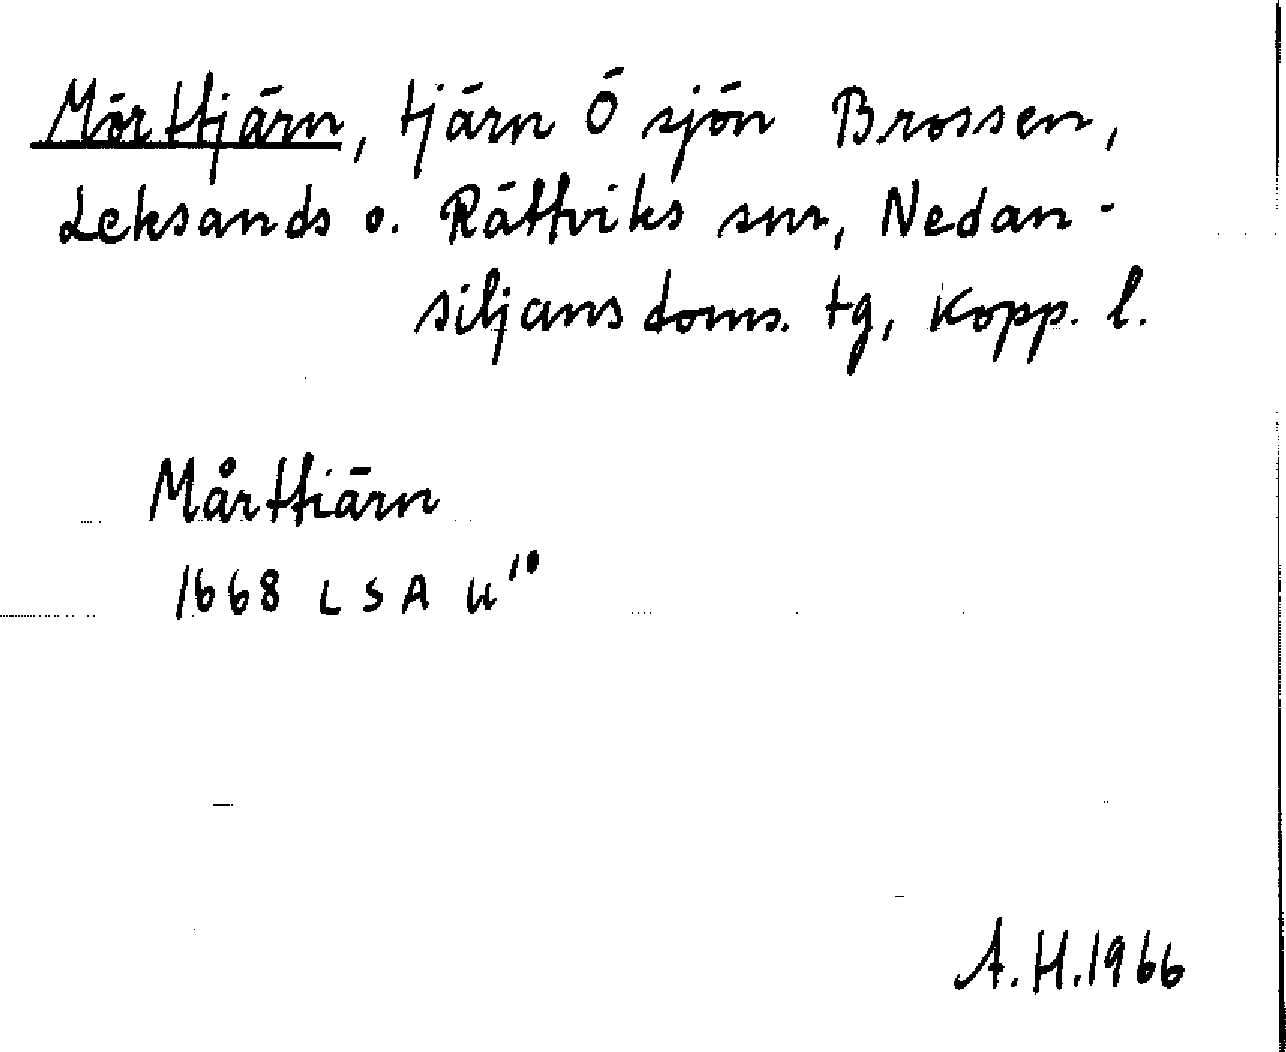 Mörttjärn, tjärn Ö sjön Brossen,
Leksands o. Rättviks snr, Nedan-
siljans doms. tg, Kopp. l.
Mårttiärn
1668 LSA U¹⁰
A.H.1966